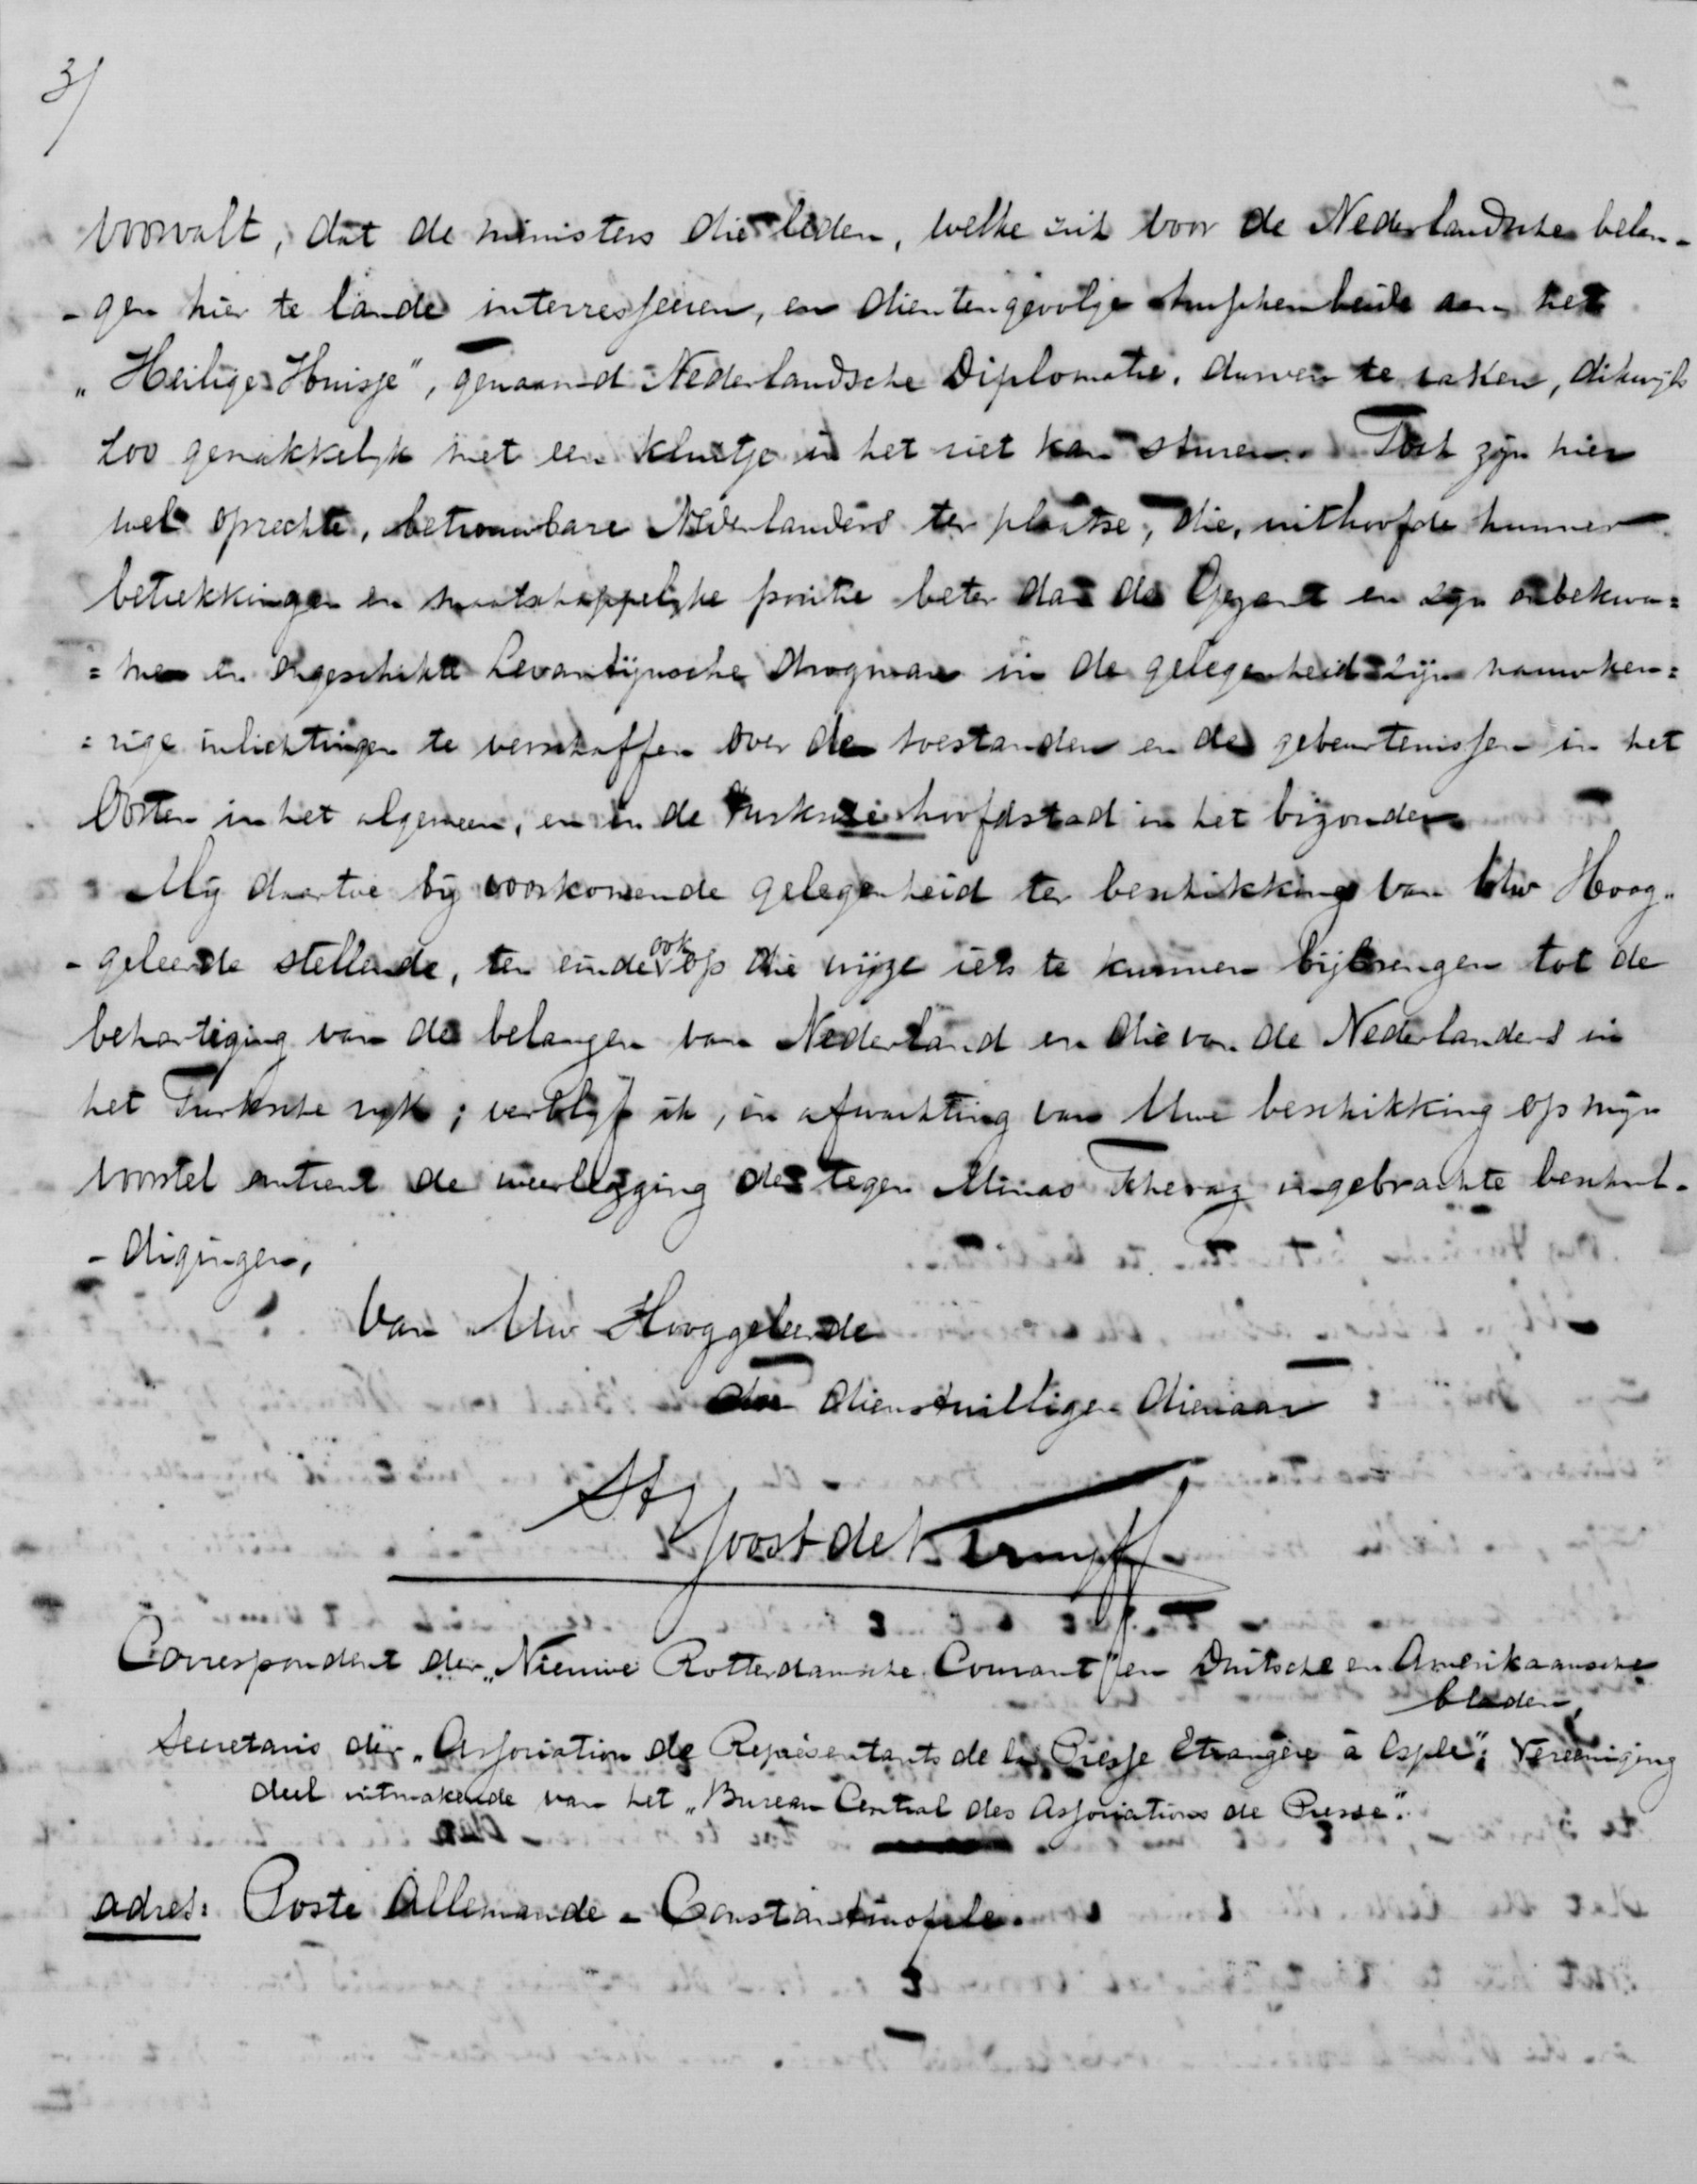 3/
voorvalt, dat de ministers die leden, welke zich voor de Nederlandsche belan-
-gen hier te lande interresseeren, en dientengevolge aan het
„Heilige Huisje", genaamd Nederlandsche Diplomatie, durven te raken, dikwijls
zoo gemakkelyk met een kluitje in het riet kan sturen. Toch zyn hier
wel oprechte, betrouwbare Nederlanders ter plaatse, die, uithoofde hunner
betrekkingen en maatschappelyke positie beter dan de Gezant en zyn onbekwa=
=me en ongeschikte Levantijnsche drogman in de gelegenheid zijn nauwkeu=
=rige inlichtingen te verschaffen over de toestanden en de gebeurtenissen in het
Oosten in het algemeen, en in de Turksche hoofdstad in het bizonder.
Mij daartoe bij voorkomende gelegenheid ter beschikking van Uw Hoog-
-geleerde stellende, ten einde ook op die wijze iets te kunnen bijbrengen tot de
behartiging van de belangen van Nederland en die van de Nederlanders in
het Turksche ryk; verblyf ik, in afwachting van Uwe beschikking op myn
voorstel omtrent de weerlegging der tegen Minas Tcheraz ingebrachte beschul-
-digingen,
Van Uw Hooggeleerde
den dienstwilligen dienaar
Joost de
Correspondent der „Nieuwe Rotterdamsche Courant" en Duitsche en Amerikaansche
bladen,
Secretaris der „Association de Représentants de la Presse Etrangère à Csple"; Vereeniging
deel uitmakende van het „Bureau Central des Associations de Presse".
adres: Poste Allemande - Constantinople.